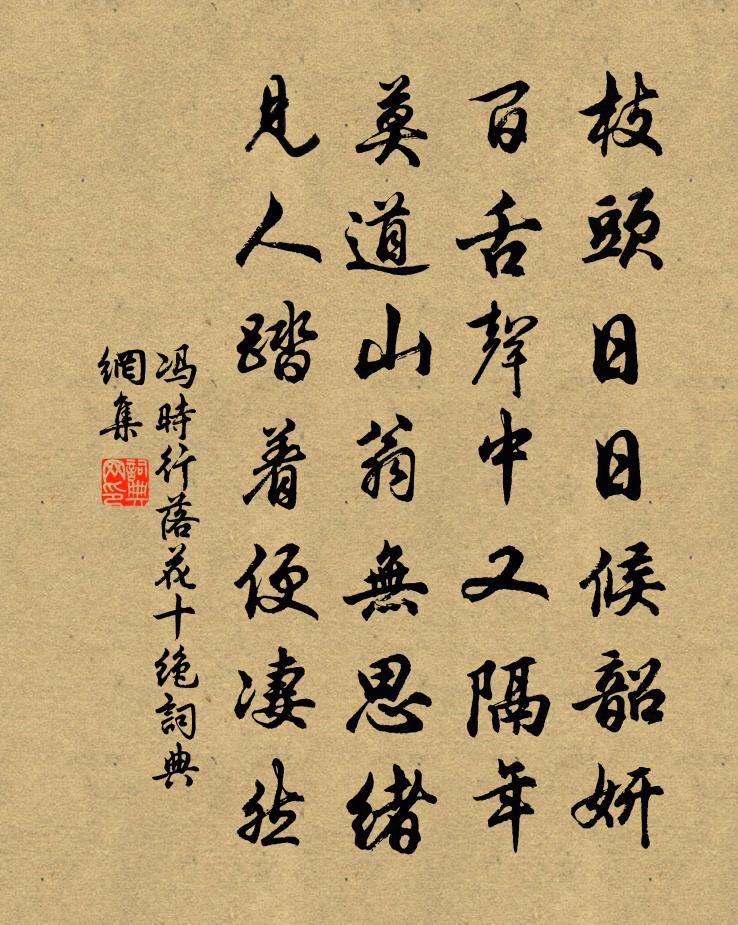 枝頭日日候韶妍
百舌聲中又隔年
莫道山翁無思緒
見人踏着便凄然
馮時行落花十絶詞典
網集
詞典
网印